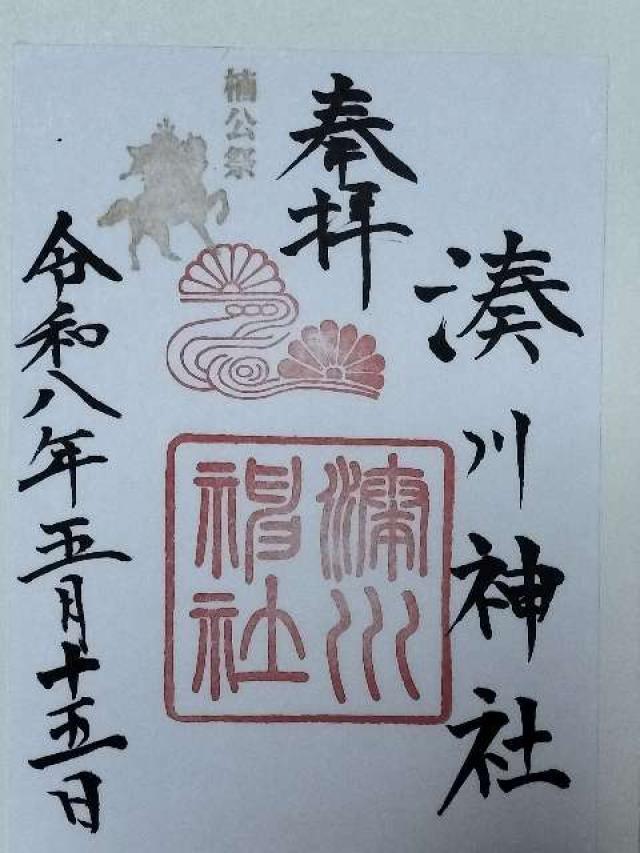 湊川神社
奉拝
楠公祭
湊川
神社
令和八年五月十五日